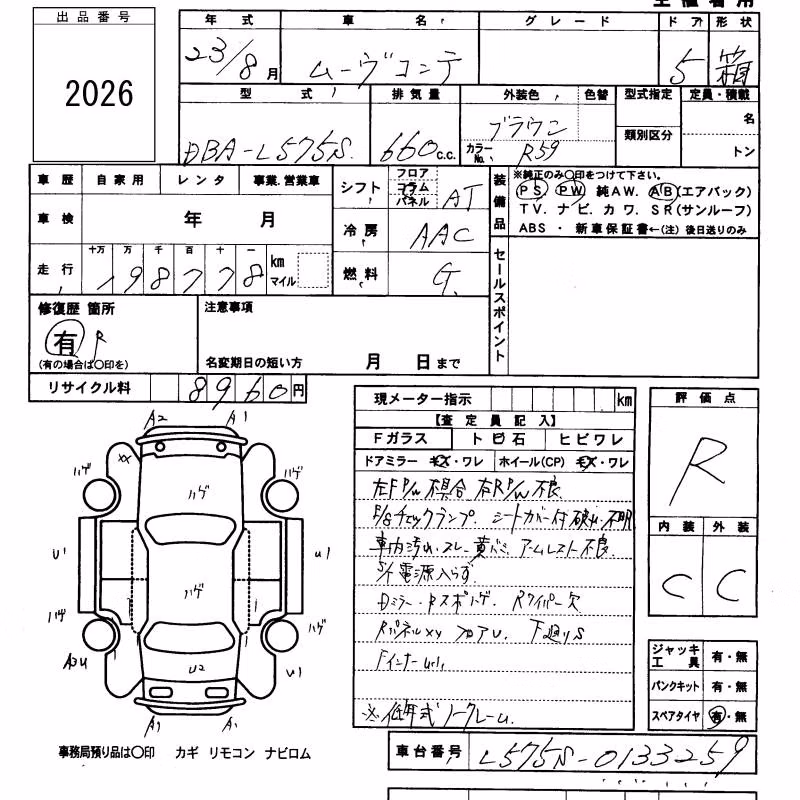 出品番号
2026
年式 車名 グレード ドア 形状
23/8月 ムーヴコンテ 5 箱
型式 排気量 外装色 色替 型式指定 定員・積載
DBA-L575S 660c.c. ブラウン カラーNo. R59 類別区分 名
トン
車歴 自家用 レンタ 事業.営業車
車検 年 月
走行 十万 万 千 百 十 一 km マイル
198778
シフト フロア コラム パネル AT
冷房 AAC
燃料 G.
装備品
※純正のみ〇印をつけて下さい。
PS PW 純AW. AB(エアバック)
TV. ナビ. カワ. SR(サンルーフ)
ABS ・ 新車保証書←(注) 後日送りのみ
セールスポイント
修復歴 箇所
有 R
(有の場合は〇印を)
注意事項
名変期日の短い方 月 日まで
リサイクル料 8960円
現メーター指示 km
【査定員記入】
Fガラス トビ石 ヒビワレ
ドアミラー キズ・ワレ ホイール(CP) キズ・ワレ
左FP/W不具合 右RP/W不良
F/Sチェックランプ. シートカバー付 破れ不明
車内汚れ.スレ.黄バミ アームレスト不良.
S/T電源入らず
Dミラー・Rスポハゲ. Rワイパー欠
RパネルXX フロアU. 下廻りS
FインナーU
※低年式ノークレーム.
評価点
R
内装 外装
C C
ジャッキ工具 有・無
パンクキット 有・無
スペアタイヤ 有・無
A2 A1
XX
ハゲ ハゲ ハゲ
U1 U1
ハゲ
ハゲ ハゲ
A2U U2 U1
A1 A1
事務局預り品は〇印 カギ リモコン ナビロム
車台番号 L575S-0133259